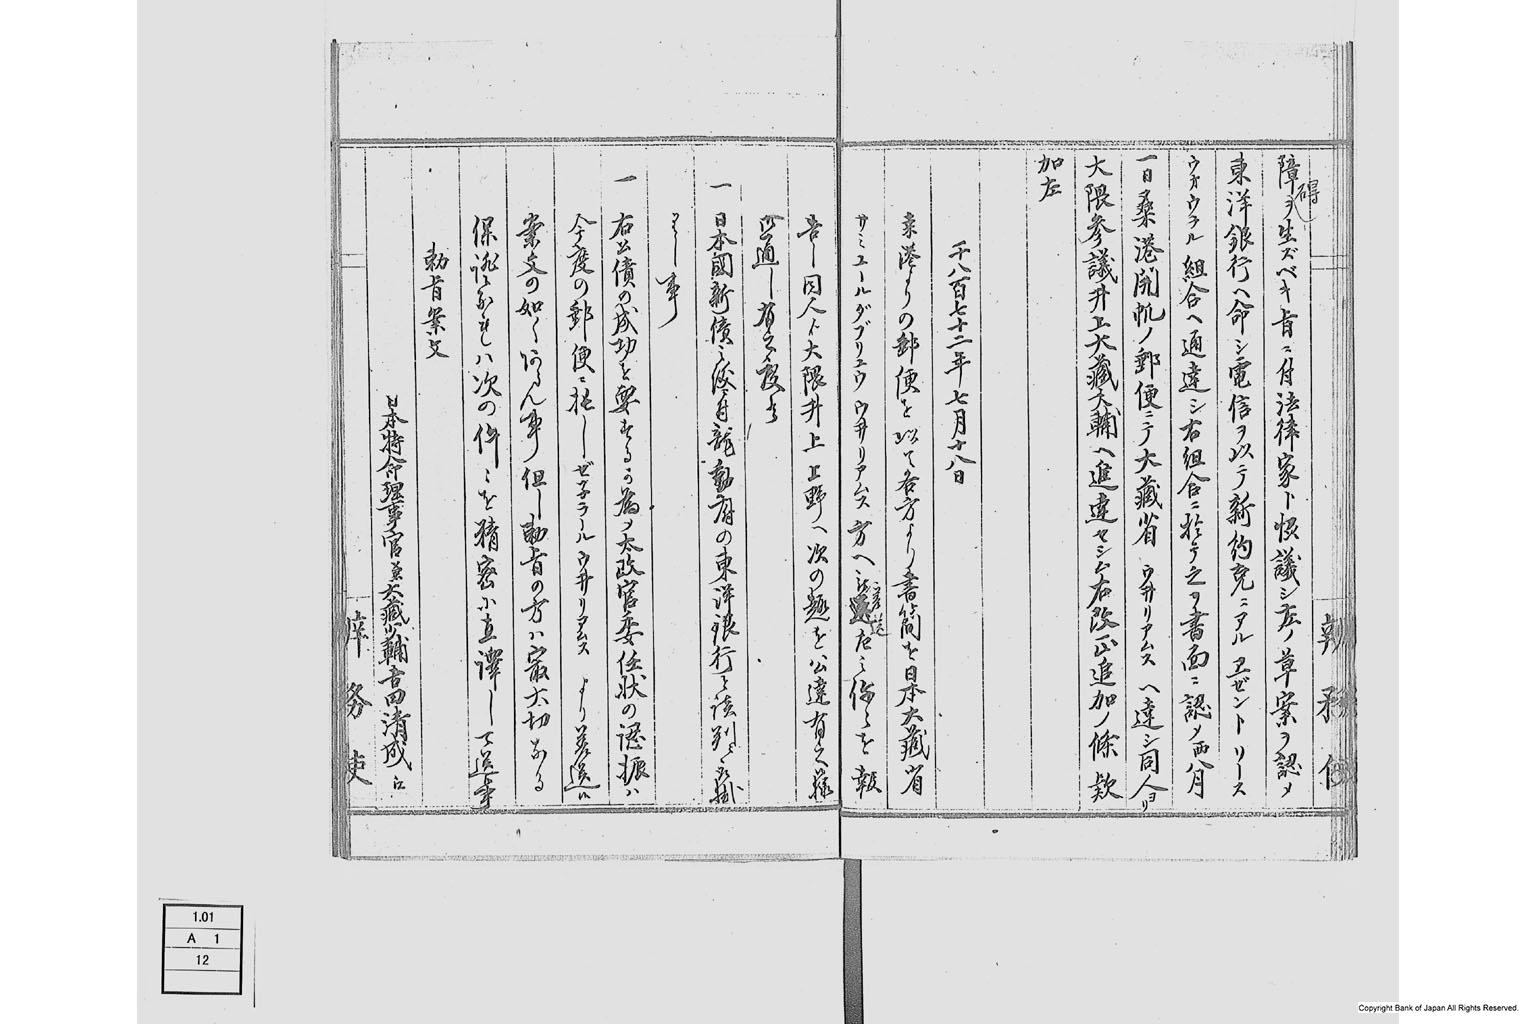 障碍ヲ生ズベキ旨ニ付法律家ト協議シ左ノ草案ヲ認メ
東洋銀行ヘ命シ電信ヲ以テ新約克ニアルヱゼントリース
ウオウラル組合ヘ通達シ右組合ニ於テ之ヲ書面ニ認メ西八月
一日桑港開帆ノ郵便ニテ大藏省ウヰリアムスヘ達シ同人ヨリ
大隈参議井上大藏大輔ヘ進達セシム右改正追加ノ條款
如左
千八百七十二年七月十八日
桑港よりの郵便を以て各方より書簡を日本大藏省
サミユールダブリユウウヰリアムス方へ差送左之を報
告し同人ト大隈井上上野へ次の趣を公達有之様
通し有之度候
一 日本國新債之龍動府の東洋銀行と談判
事
一 右公債の成功を要する為メ太政官委任状の證拠ハ
今度の郵便ニ托しゼネラールウヰリアムスより差送
案文の如く事但し勅旨の方ハ最大切なる
保證なれハ次の件を精密に直譯して送事
勅旨案文
日本特命理事官兼大藏少輔吉田清成に
辨務使
辨務使
1.01
A 1
12
Copyright Bank of Japan All Rights Reserved.